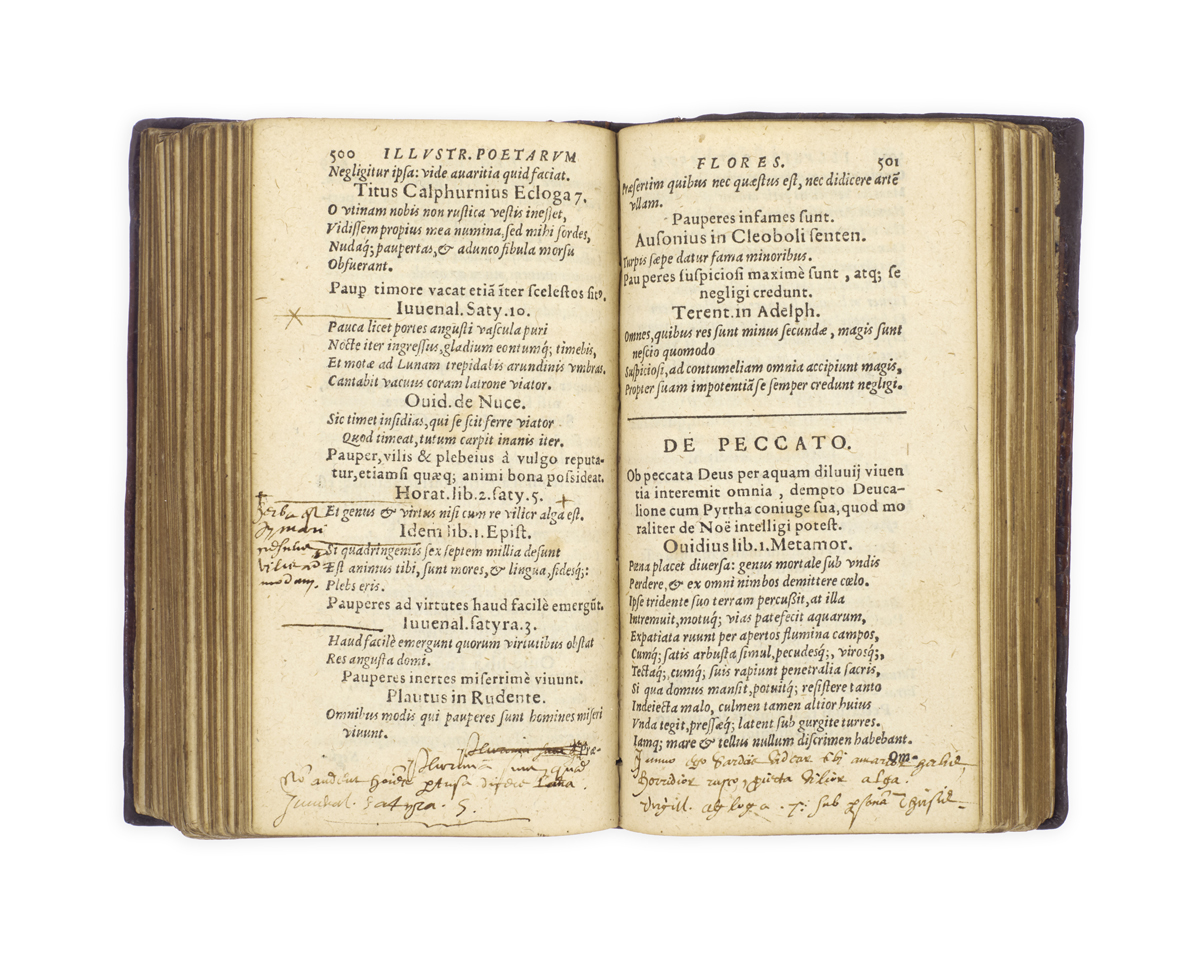 500 ILLVSTR. POETARVM
Negligitur ipsa: vide avaritia quid faciat.
Titus Calphurnius Ecloga 7.
O vtinam nobis non rustica vestis inesset,
Vidissem propius mea numina, sed mihi sordes,
Nudaq́; paupertas, & adunco fibula morsu
Obfuerant.
Paup timore vacat etiā īter scelestos sit⁹.
Iuuenal. Saty. 10.
Pauca licet portes angusti vascula puri
Nocte iter ingressus, gladium contumq́; timebis,
Et motæ ad Lunam trepidabis arundinis vmbras.
Cantabit vacuus coram latrone viator.
Ouid. de Nuce.
Sic timet insidias, qui se scit ferre viator
Quod timeat, tutum carpit inanis iter.
Pauper, vilis & plebeius à vulgo reputa-
tur, etiamsi quæq; animi bona possideat.
Horat. lib. 2. saty. 5.
Et genus & virtus nisi cum re vilior alga est.
Idem lib. 1. Epist.
Si quadringentis sex septem millia desunt
Est animus tibi, sunt mores, & lingua, fidesq́;:
Plebs eris.
Pauperes ad virtutes haud facilè emergūt.
Iuuenal. satyra. 3.
Haud facilè emergunt quorum virtutibus obstat
Res angusta domi.
Pauperes inertes miserrimè viuunt.
Plautus in Rudente.
Omnibus modis qui pauperes sunt homines miseri
viuunt.
Præ-
Plurima sunt quæ
No audent hoīes ptusa dicere læna.
Juuenal. Satyra. 5.
FLORES. 501
Præsertim quibus nec quæstus est, nec didicere artē
vllam.
Pauperes infames sunt.
Ausonius in Cleoboli senten.
Turpis sæpe datur fama minoribus.
Pauperes suspiciosi maximè sunt, atq; se
negligi credunt.
Terent. in Adelph.
Omnes, quibus res sunt minus secundæ, magis sunt
nescio quomodo
Suspiciosi, ad contumeliam omnia accipiunt magis,
Propter suam impotentiā se semper credunt negligi.
DE PECCATO.
Ob peccata Deus per aquam diluuij viuen
tia interemit omnia, dempto Deuca-
lione cum Pyrrha coniuge sua, quod mo
raliter de Noë intelligi potest.
Ouidius lib. 1. Metamor.
Pæna placet diuersa: genus mortale sub vndis
Perdere, & ex omni nimbos demittere cœlo.
Ipse tridente suo terram percußit, at illa
Intremuit, motuq́; vias patefecit aquarum,
Expatiata ruunt per apertos flumina campos,
Cumq́; satis arbusta simul, pecudesq́;, virosq́;,
Tectaq́;, cumq́; suis rapiunt penetralia sacris,
Si qua domus mansit, potuitq́; resistere tanto
Indeiecta malo, culmen tamen altior huius
Vnda tegit, pressæq́; latent sub gurgite turres.
Iamq́; mare & tellus nullum discrimen habebant.
Om-
Immo ego Sardois videar tibi amarior
Horridior rusco, proiecta vilior alga.
Virgill. aegloga. 7. sub psona Thirsid.